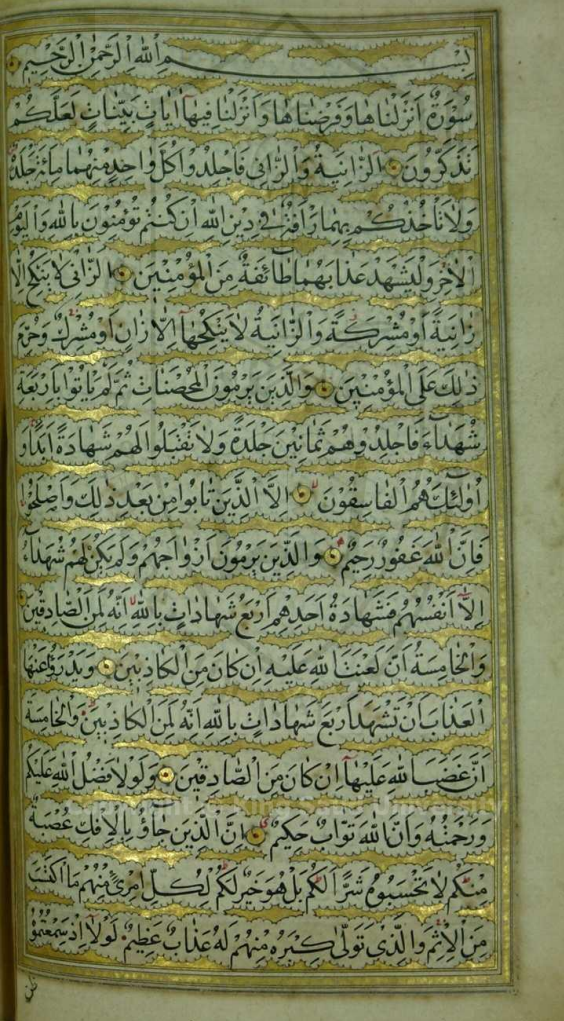 بِسْمِ اللهِ الرَّحْمٰنِ الرَّحِيْمِ
سُورَةٌ اَنْزَلْنَاهَا وَفَرَضْنَاهَا وَاَنْزَلْنَا فِيهَا اٰيَاتٍ بَيِّنَاتٍ لَعَلَّكُمْ
تَذَكَّرُونَ الزَّانِيَةُ وَالزَّانِى فَاجْلِدُوا كُلَّ وَاحِدٍ مِنْهُمَا مِائَةَ جَلْدَةٍ
وَلَا تَأْخُذْكُمْ بِهِمَا رَأْفَةٌ فِى دِينِ اللهِ اِنْ كُنْتُمْ تُؤْمِنُونَ بِاللهِ وَالْيَوْمِ
الْاٰخِرِ وَلْيَشْهَدْ عَذَابَهُمَا طَائِفَةٌ مِنَ الْمُؤْمِنِينَ الزَّانِى لَا يَنْكِحُ اِلَّا
زَانِيَةً اَوْ مُشْرِكَةً وَالزَّانِيَةُ لَا يَنْكِحُهَا اِلَّا زَانٍ اَوْ مُشْرِكٌ وَحُرِّمَ
ذٰلِكَ عَلَى الْمُؤْمِنِينَ وَالَّذِينَ يَرْمُونَ الْمُحْصَنَاتِ ثُمَّ لَمْ يَأْتُوا بِاَرْبَعَةِ
شُهَدَاءَ فَاجْلِدُوهُمْ ثَمَانِينَ جَلْدَةً وَلَا تَقْبَلُوا لَهُمْ شَهَادَةً اَبَدًا وَ
اُولٰئِكَ هُمُ الْفَاسِقُونَ اِلَّا الَّذِينَ تَابُوا مِنْ بَعْدِ ذٰلِكَ وَاَصْلَحُوا
فَاِنَّ اللهَ غَفُورٌ رَحِيمٌ وَالَّذِينَ يَرْمُونَ اَزْوَاجَهُمْ وَلَمْ يَكُنْ لَهُمْ شُهَدَاءُ
اِلَّا اَنْفُسُهُمْ فَشَهَادَةُ اَحَدِهِمْ اَرْبَعُ شَهَادَاتٍ بِاللهِ اِنَّهُ لَمِنَ الصَّادِقِينَ
وَالْخَامِسَةُ اَنَّ لَعْنَتَ اللهِ عَلَيْهِ اِنْ كَانَ مِنَ الْكَاذِبِينَ وَيَدْرَؤُا عَنْهَا
الْعَذَابَ اَنْ تَشْهَدَ اَرْبَعَ شَهَادَاتٍ بِاللهِ اِنَّهُ لَمِنَ الْكَاذِبِينَ وَالْخَامِسَةَ
اَنَّ غَضَبَ اللهِ عَلَيْهَا اِنْ كَانَ مِنَ الصَّادِقِينَ وَلَوْلَا فَضْلُ اللهِ عَلَيْكُمْ
وَرَحْمَتُهُ وَاَنَّ اللهَ تَوَّابٌ حَكِيمٌ اِنَّ الَّذِينَ جَاؤُا بِالْاِفْكِ عُصْبَةٌ
مِنْكُمْ لَا تَحْسَبُوهُ شَرًّا لَكُمْ بَلْ هُوَ خَيْرٌ لَكُمْ لِكُلِّ امْرِئٍ مِنْهُمْ مَا اكْتَسَبَ
مِنَ الْاِثْمِ وَالَّذِى تَوَلّٰى كِبْرَهُ مِنْهُمْ لَهُ عَذَابٌ عَظِيمٌ لَوْلَا اِذْ سَمِعْتُمُوهُ
ظن